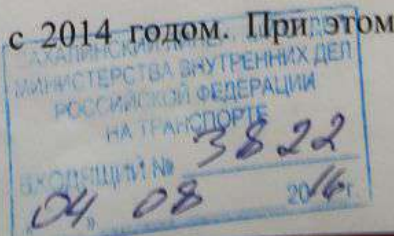 с 2014 годом. При этом
МИНИСТЕРСТВА ВНУТРЕННИХ ДЕЛ
РОССИЙСКОЙ ФЕДЕРАЦИИ
НА ТРАНСПОРТЕ
ВХОДЯЩИЙ № 3822
„04„ 08 2016 г.